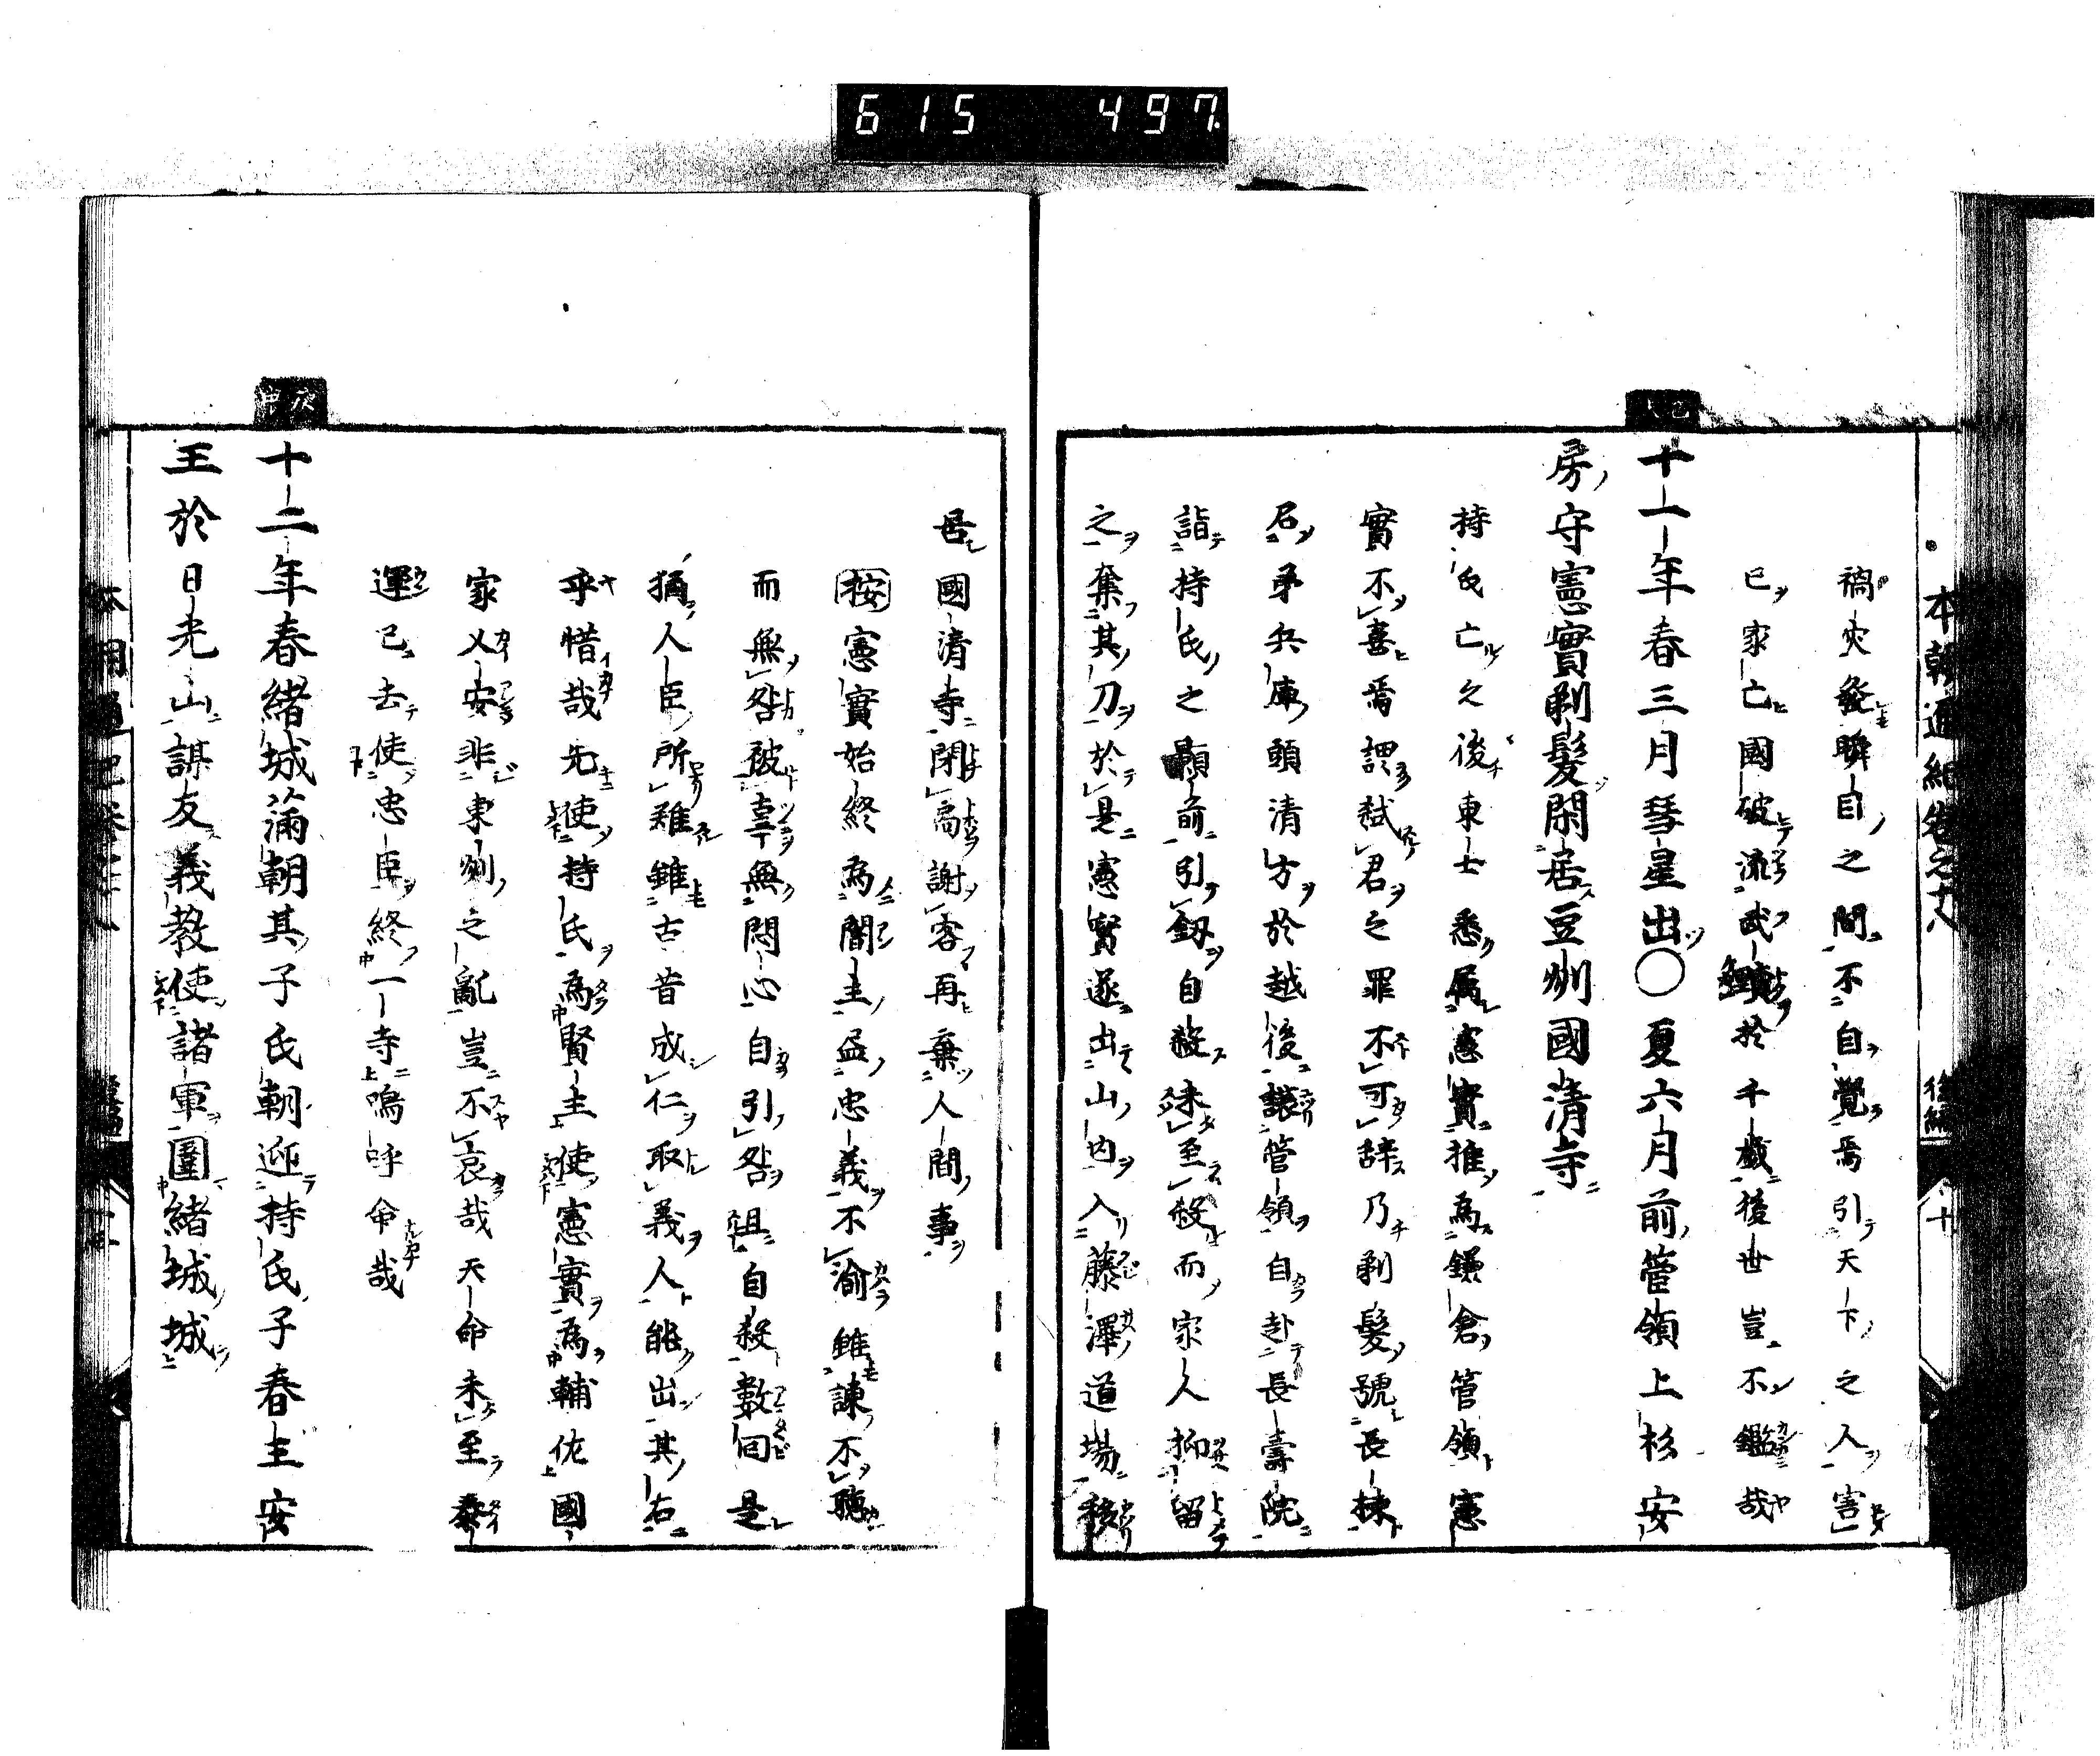 615 497.
本朝通紀卷之十八 後編 十
禍災發瞬目之間不自覺焉引天下之人害
己家亡國破流武於千歲後世豈不鑑哉
己未
十一年春三月彗星出〇夏六月前管領上杉安
房守憲實剃髮閑居豆州國清寺
持氏亡之後東士悉屬憲實推為鎌倉管領憲
實不喜焉謂弑君之罪不可辞乃剃髮號長棟
召弟兵庫頭清方於越後讓管領自赴長壽院
詣持氏之顯前引劔自殺未至殺而家人抑留
之奪其刀於是憲實遂出山內入藤澤道場移
居國清寺閉扃謝客再棄人間事
按憲實始終為闇主盡忠義不渝雖諫不聽
而無咎被辜無悶心自引咎且自殺數回是
猶人臣所難雖古昔成仁取義人能出其右
乎惜哉先使持氏為賢主使憲實為輔佐國
家乂安非東州之亂豈不哀哉天命未至泰
運已去使忠臣終一寺嗚呼命哉
庚申
十二年春緒城滿朝其子氏朝迎持氏子春王安
王於日光山謀友義教使諸軍圍緒城城